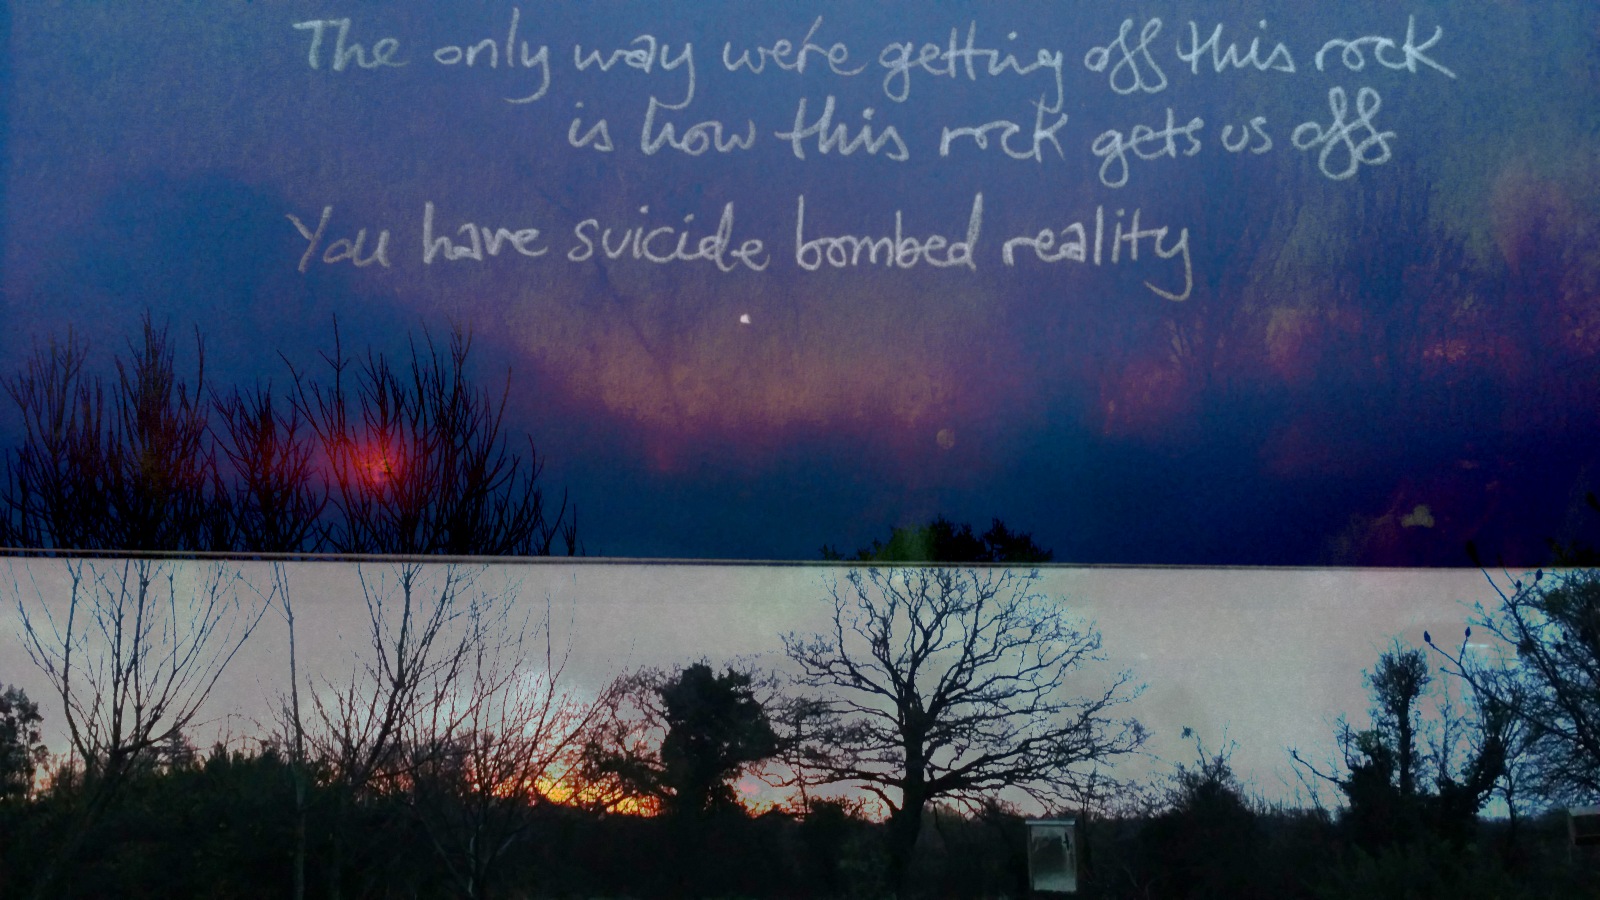 The only way we're getting off this rock
is how this rock gets us off
You have suicide bombed reality